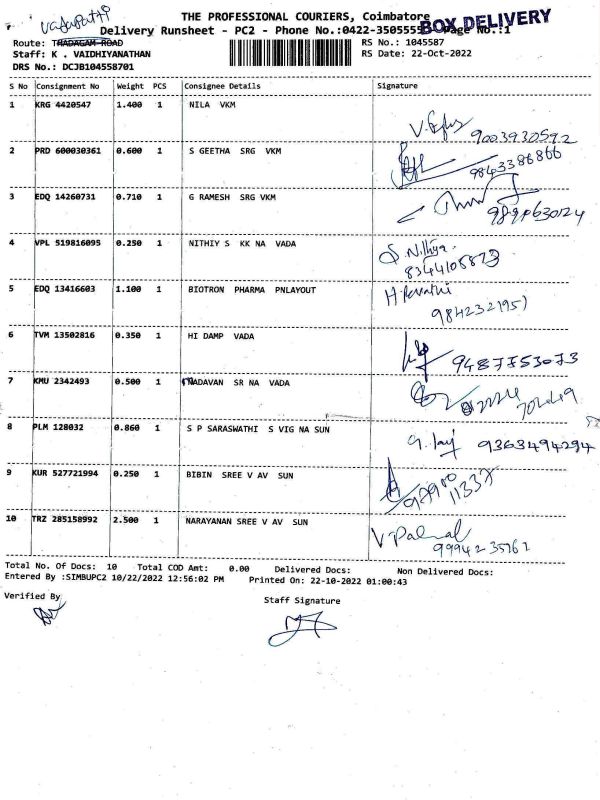 THE PROFESSIONAL COURIERS, Coimbatore
BOX DELIVERY
Delivery Runsheet - PC2 - Phone No.:0422-3505555 Page No.:1
Route: THADAGAM ROAD
RS No.: 1045587
Staff: K . VAIDHIYANATHAN
RS Date: 22-Oct-2022
DRS No.: DCJB104558701
S No Consignment No Weight PCS Consignee Details Signature
1 KRG 4420547 1.400 1 NILA VKM
9003930592
2 PRD 600030361 0.600 1 S GEETHA SRG VKM
9843386866
3 EDQ 14260731 0.710 1 G RAMESH SRG VKM
4 VPL 519816095 0.250 1 NITHIY S KK NA VADA
S. Nithya.
8344108873
5 EDQ 13416603 1.100 1 BIOTRON PHARMA PNLAYOUT
H. Revathi
9842321951
6 TVM 13502816 0.350 1 HI DAMP VADA
9487753073
7 KMU 2342493 0.500 1 MADAVAN SR NA VADA
8 PLM 128032 0.860 1 S P SARASWATHI S VIG NA SUN
9363494294
9 KUR 527721994 0.250 1 BIBIN SREE V AV SUN
10 TRZ 285158992 2.500 1 NARAYANAN SREE V AV SUN
Total No. Of Docs: 10 Total COD Amt: 0.00 Delivered Docs: Non Delivered Docs:
Entered By :SIMBUPC2 10/22/2022 12:56:02 PM Printed On: 22-10-2022 01:00:43
Verified By
Staff Signature